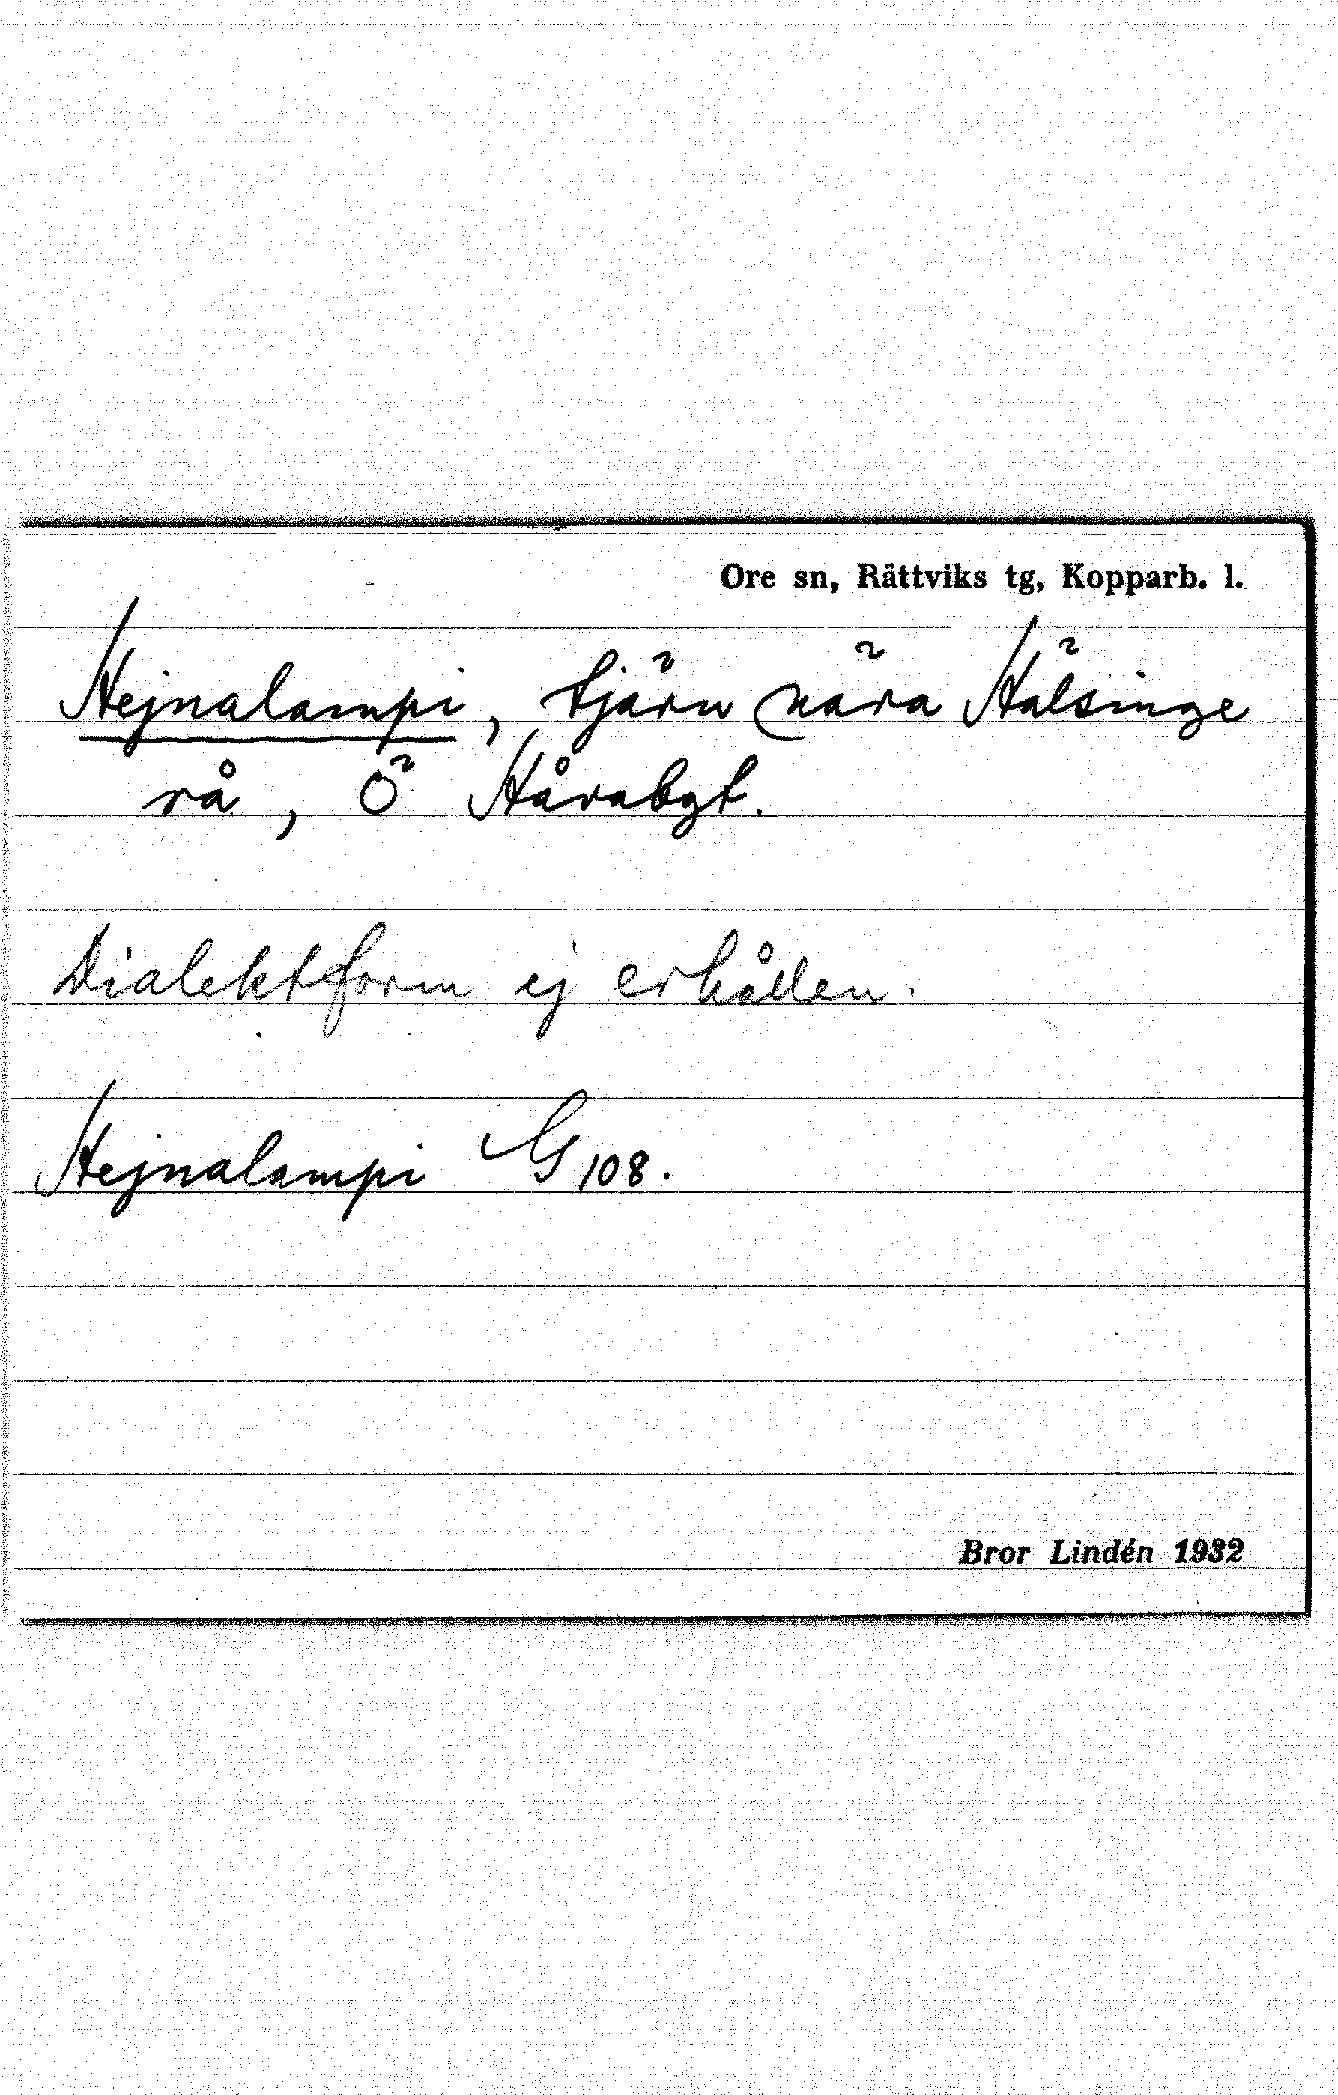 Ore sn, Rättviks tg, Kopparb. l.
Hejnalampi, tjärn nära Hälsinge
rå, Ö Håvabyt.
Dialektform ej erhållen.
Hejnalampi G 108.
Bror Lindén 1932